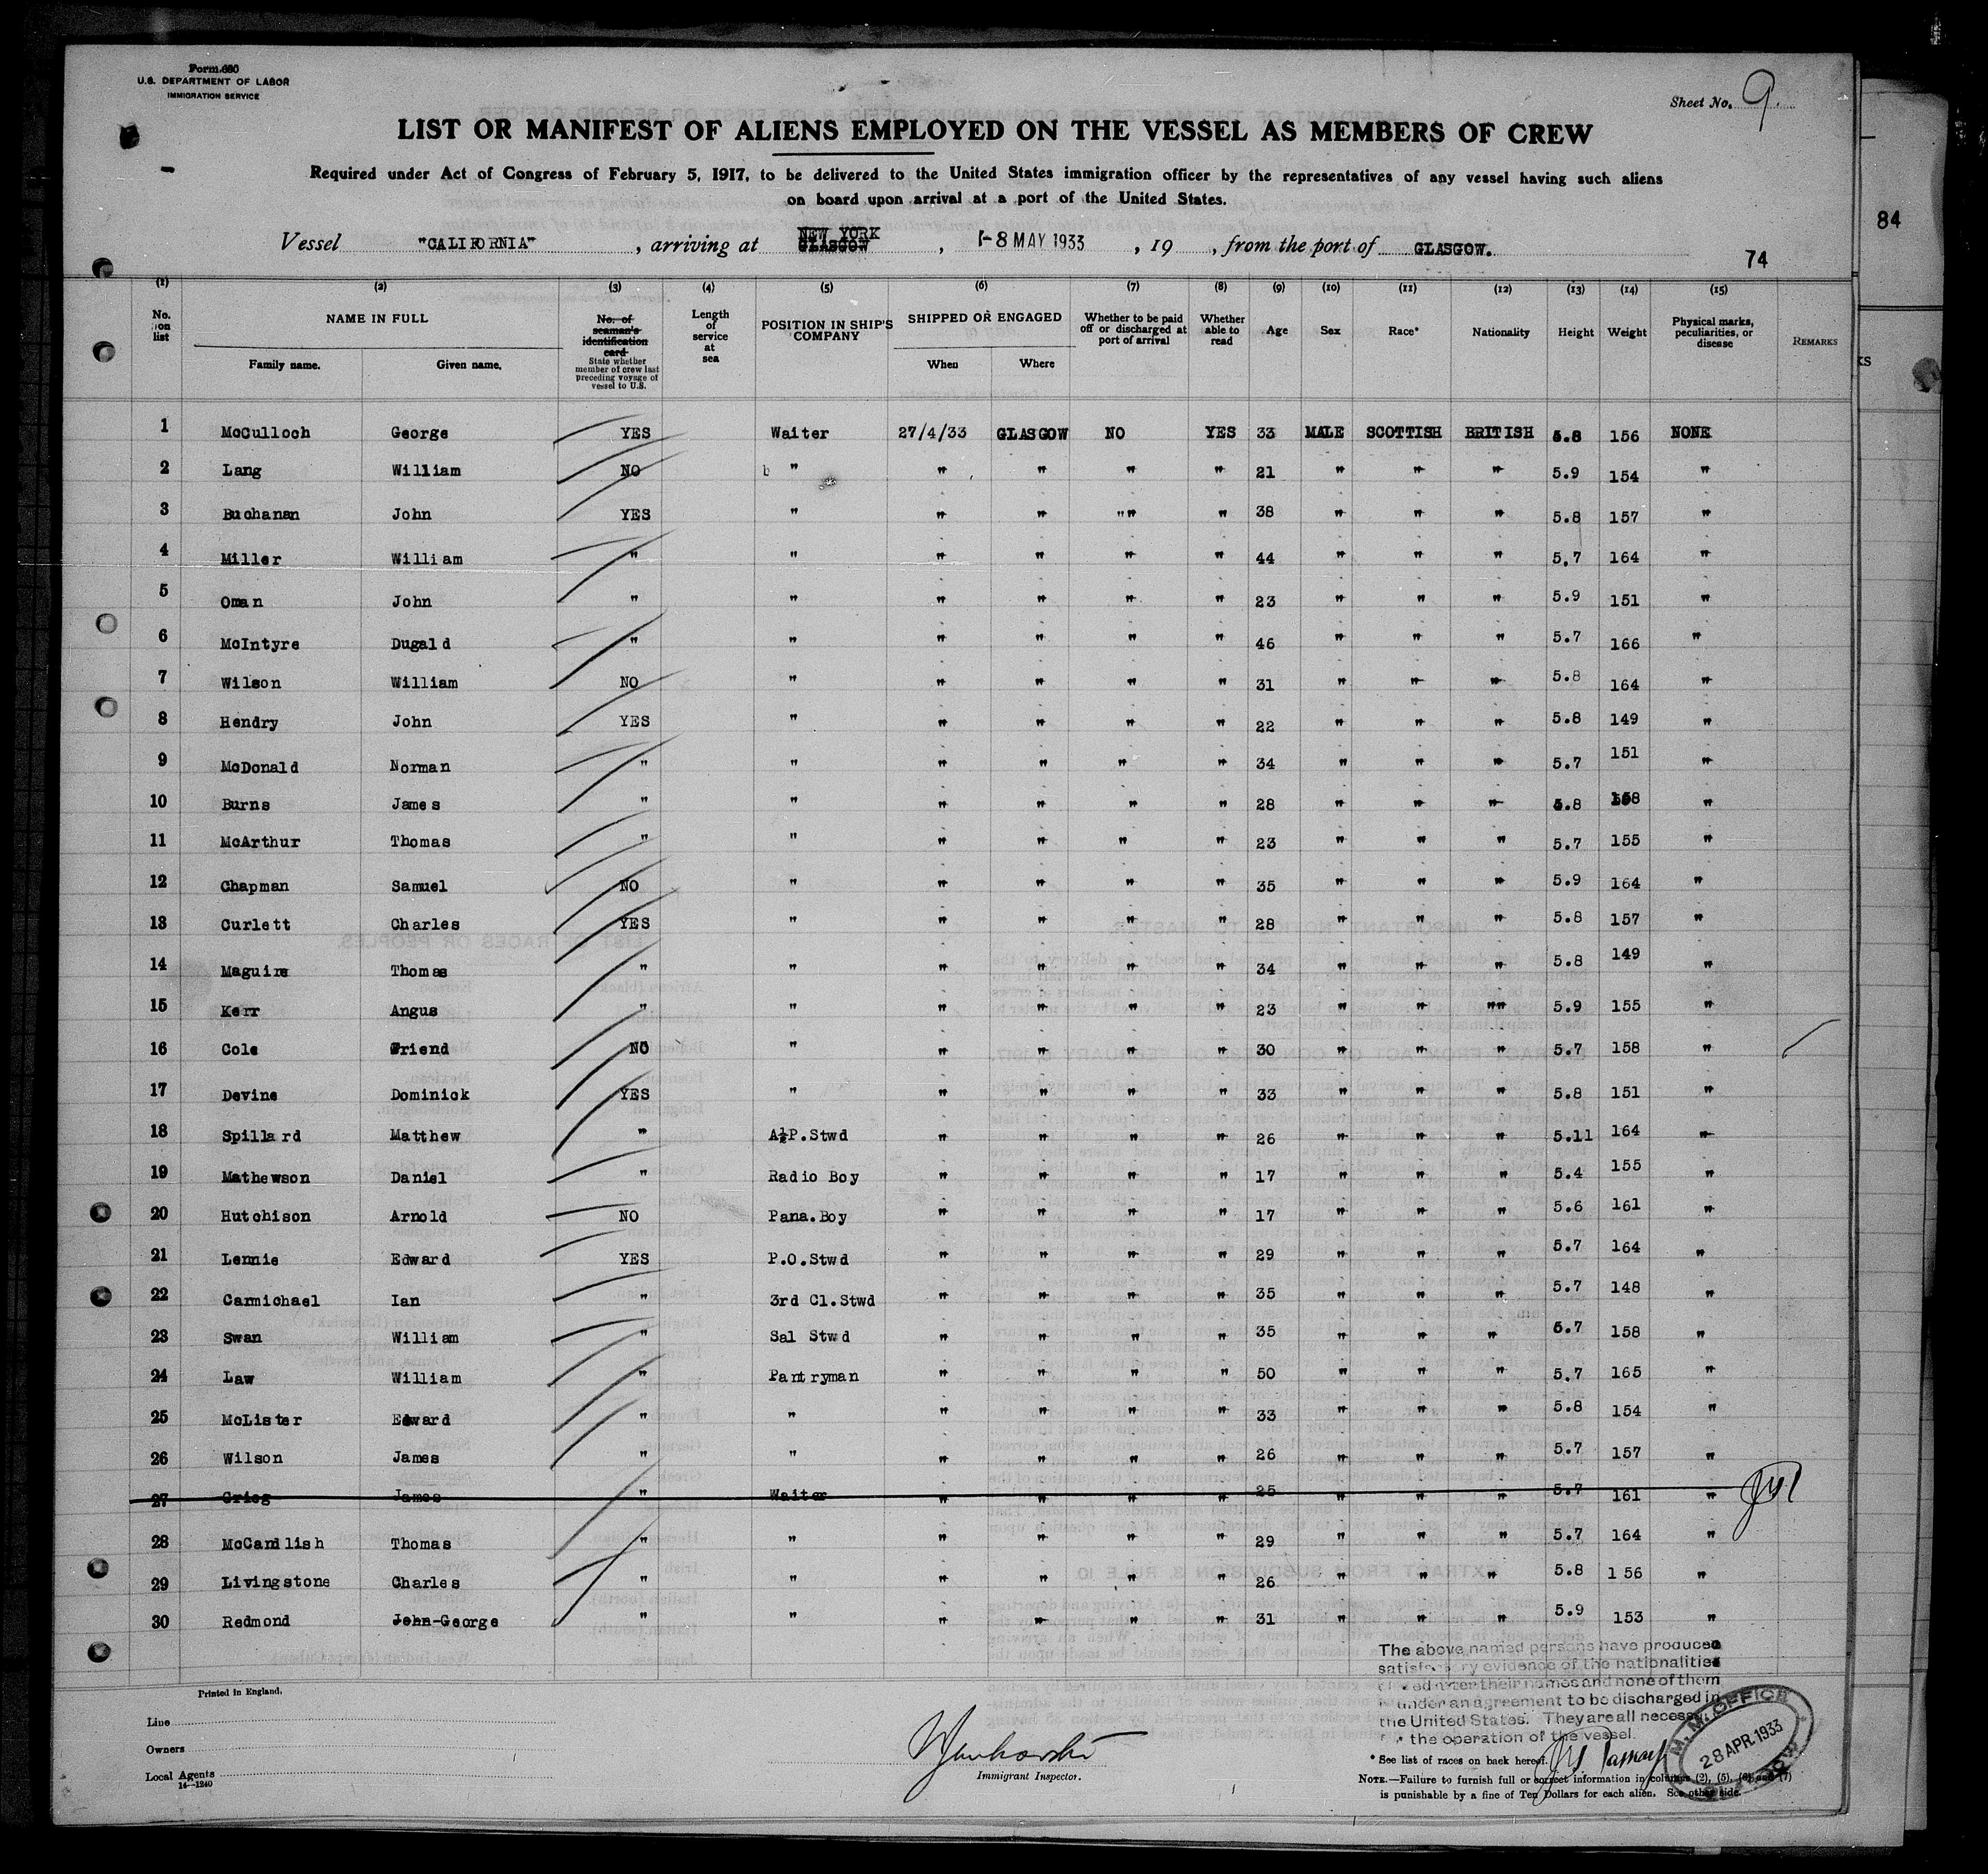 Form 680
U.S. DEPARTMENT OF LABOR
IMMIGRATION SERVICE
Sheet No. 9.
LIST OR MANIFEST OF ALIENS EMPLOYED ON THE VESSEL AS MEMBERS OF CREW
Required under Act of Congress of February 5, 1917, to be delivered to the United States immigration officer by the representatives of any vessel having such aliens
on board upon arrival at a port of the United States.
Vessel "CALIFORNIA", arriving at GLASGOW NEW YORK, 8 MAY 1933, 19 , from the port of GLASGOW.
74
84
(1) (2) (3) (4) (5) (6) (7) (8) (9) (10) (11) (12) (13) (14) (15)
No. on list NAME IN FULL Family name. Given name. No. of seaman's identification card State whether member of crew last preceding voyage of vessel to U.S. Length of service at sea POSITION IN SHIP'S COMPANY SHIPPED OR ENGAGED When Where Whether to be paid off or discharged at port of arrival Whether able to read Age Sex Race* Nationality Height Weight Physical marks, peculiarities, or disease REMARKS
KS
1 McCulloch George YES Waiter 27/4/33 GLASGOW NO YES 33 MALE SCOTTISH BRITISH 5.8 156 NONE
2 Lang William NO " " " " " 21 " " " 5.9 154 "
3 Buchanan John YES " " " "" " 38 " " " 5.8 157 "
4 Miller William " " " " " " 44 " " " 5.7 164 "
5 Oman John " " " " " " 23 " " " 5.9 151 "
6 McIntyre Dugald " " " " " " 46 " " " 5.7 166 "
7 Wilson William NO " " " " " 31 " " " 5.8 164 "
8 Hendry John YES " " " " " 22 " " " 5.8 149 "
9 McDonald Norman " " " " " " 34 " " " 5.7 151 "
10 Burns James " " " " " " 28 " " " 5.8 158 "
11 McArthur Thomas " " " " " " 23 " " " 5.7 155 "
12 Chapman Samuel NO " " " " " 35 " " " 5.9 164 "
13 Curlett Charles YES " " " " " 28 " " " 5.8 157 "
14 Maguire Thomas " " " " " " 34 " " " 5.8 149 "
15 Kerr Angus " " " " " " 23 " " "" 5.9 155 "
16 Cole Friend NO " " " " " 30 " " " 5.7 158 "
17 Devine Dominick YES " " " " " 33 " " " 5.8 151 "
18 Spillard Matthew " A½P.Stwd " " " " 26 " " " 5.11 164 "
19 Mathewson Daniel " Radio Boy " " " " 17 " " " 5.4 155 "
20 Hutchison Arnold NO Pana.Boy " " " " 17 " " " 5.6 161 "
21 Lennie Edward YES P.O.Stwd " " " " 29 " " " 5.7 164 "
22 Carmichael Ian " 3rd Cl.Stwd " " " " 35 " " " 5.7 148 "
23 Swan William " Sal Stwd " " " " 35 " " " 5.7 158 "
24 Law William " Pantryman " " " " 50 " " " 5.7 165 "
25 McLister Edward " " " " " " 33 " " " 5.8 154 "
26 Wilson James " " " " " " 26 " " " 5.7 157 "
27 Grieg James " Waiter " " " " 25 " " " 5.7 161 "
28 McCandlish Thomas " " " " " " 29 " " " 5.7 164 "
29 Livingstone Charles " " " " " " 26 " " " 5.8 156 "
30 Redmond John George " " " " " " 31 " " " 5.9 153 "
The above named persons have produced
satisfactory evidence of the nationalities
after their names and none of them
is under an agreement to be discharged in
the United States. They are all necessary
the operation of the vessel.
M.M. OFFICE
28 APR. 1933
Printed in England.
Line
Owners
Local Agents
14—1240
Immigrant Inspector.
* See list of races on back hereof.
NOTE.—Failure to furnish full or correct information in columns (2), (5), (6) and (7)
is punishable by a fine of Ten Dollars for each alien. See other side.